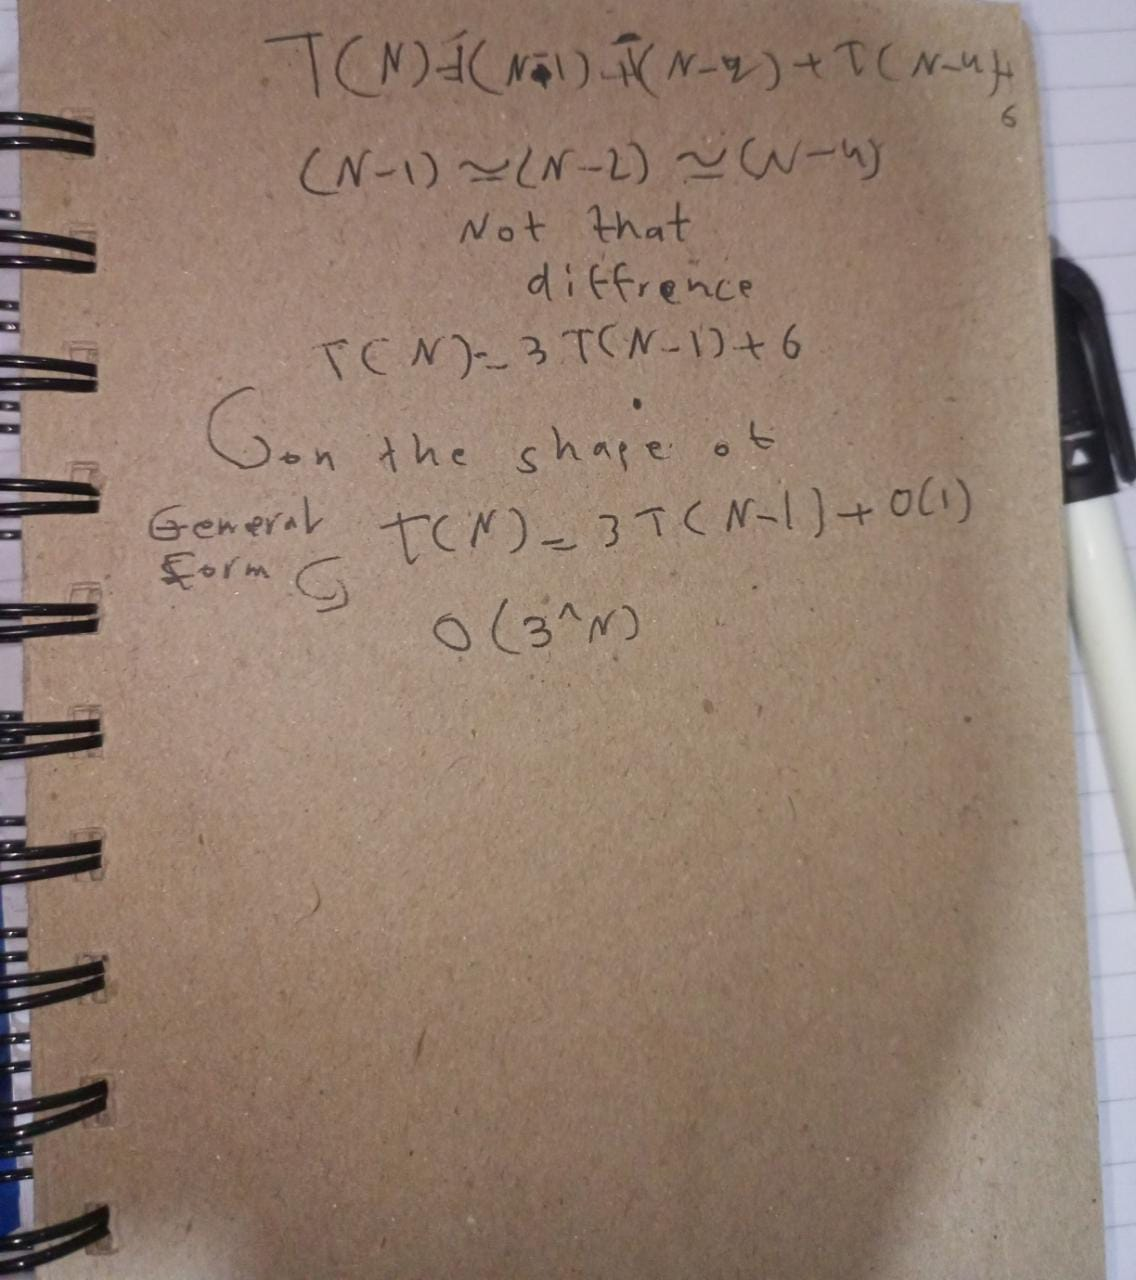 T(N)=T(N-1)+T(N-2)+T(N-4)+
6
(N-1) ≃ (N-2) ≃ (N-4)
Not that
diffrence
T(N) = 3 T(N-1) + 6
on the shape of
General
form
T(N) = 3 T(N-1) + O(1)
O(3^N)